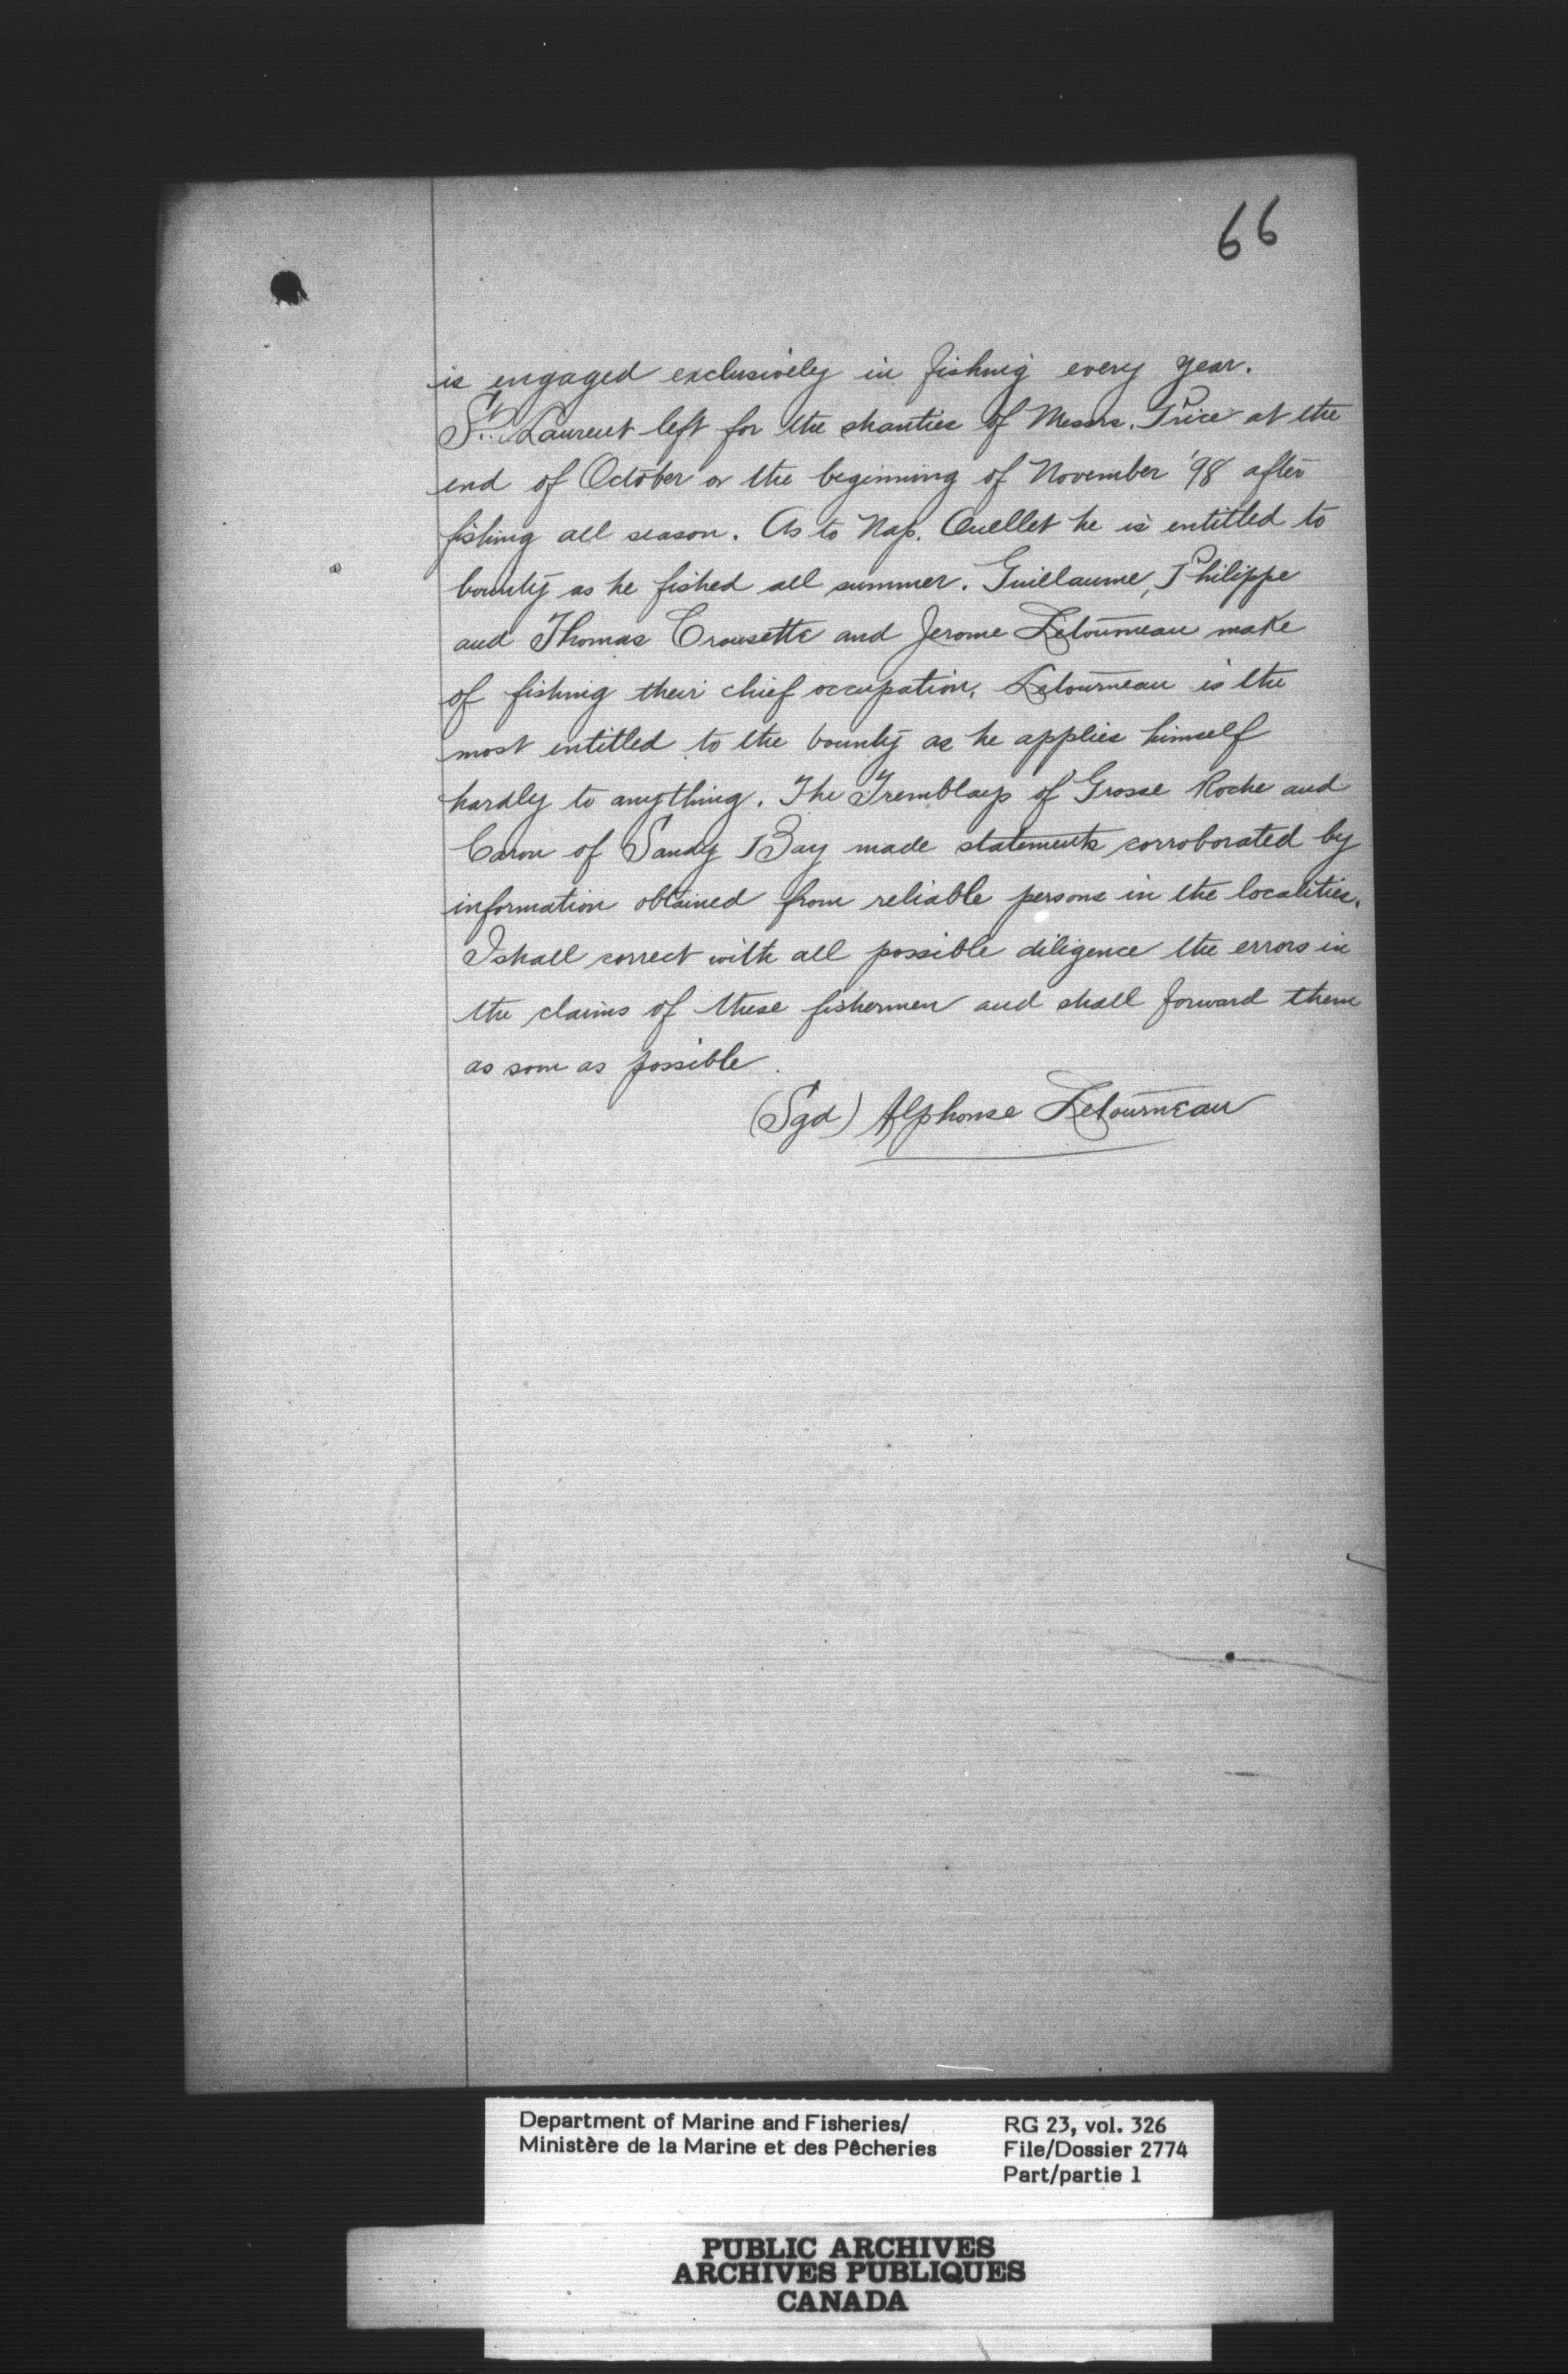 66
is engaged exclusively in fishing every year.
St. Laurent left for the shanties of Messrs. Price at the
end of October or the beginning of November '98 after
fishing all season. As to Nap. Ouellet he is entitled to
bounty as he fished all summer. Guillaume, Philippe
and Thomas Crousette and Jerome Letourneau make
of fishing their chief occupation. Letourneau is the
most entitled to the bounty as he applies himself
hardly to anything. The Tremblays of Grosse Roche and
Caron of Sandy Bay made statements corroborated by
information obtained from reliable persons in the localities.
I shall correct with all possible diligence the errors in
the claims of these fishermen and shall forward them
as soon as possible.
(Sgd) Alphonse Letourneau
Department of Marine and Fisheries/
Ministère de la Marine et des Pêcheries
RG 23, vol. 326
File/Dossier 2774
Part/partie 1
PUBLIC ARCHIVES
ARCHIVES PUBLIQUES
CANADA